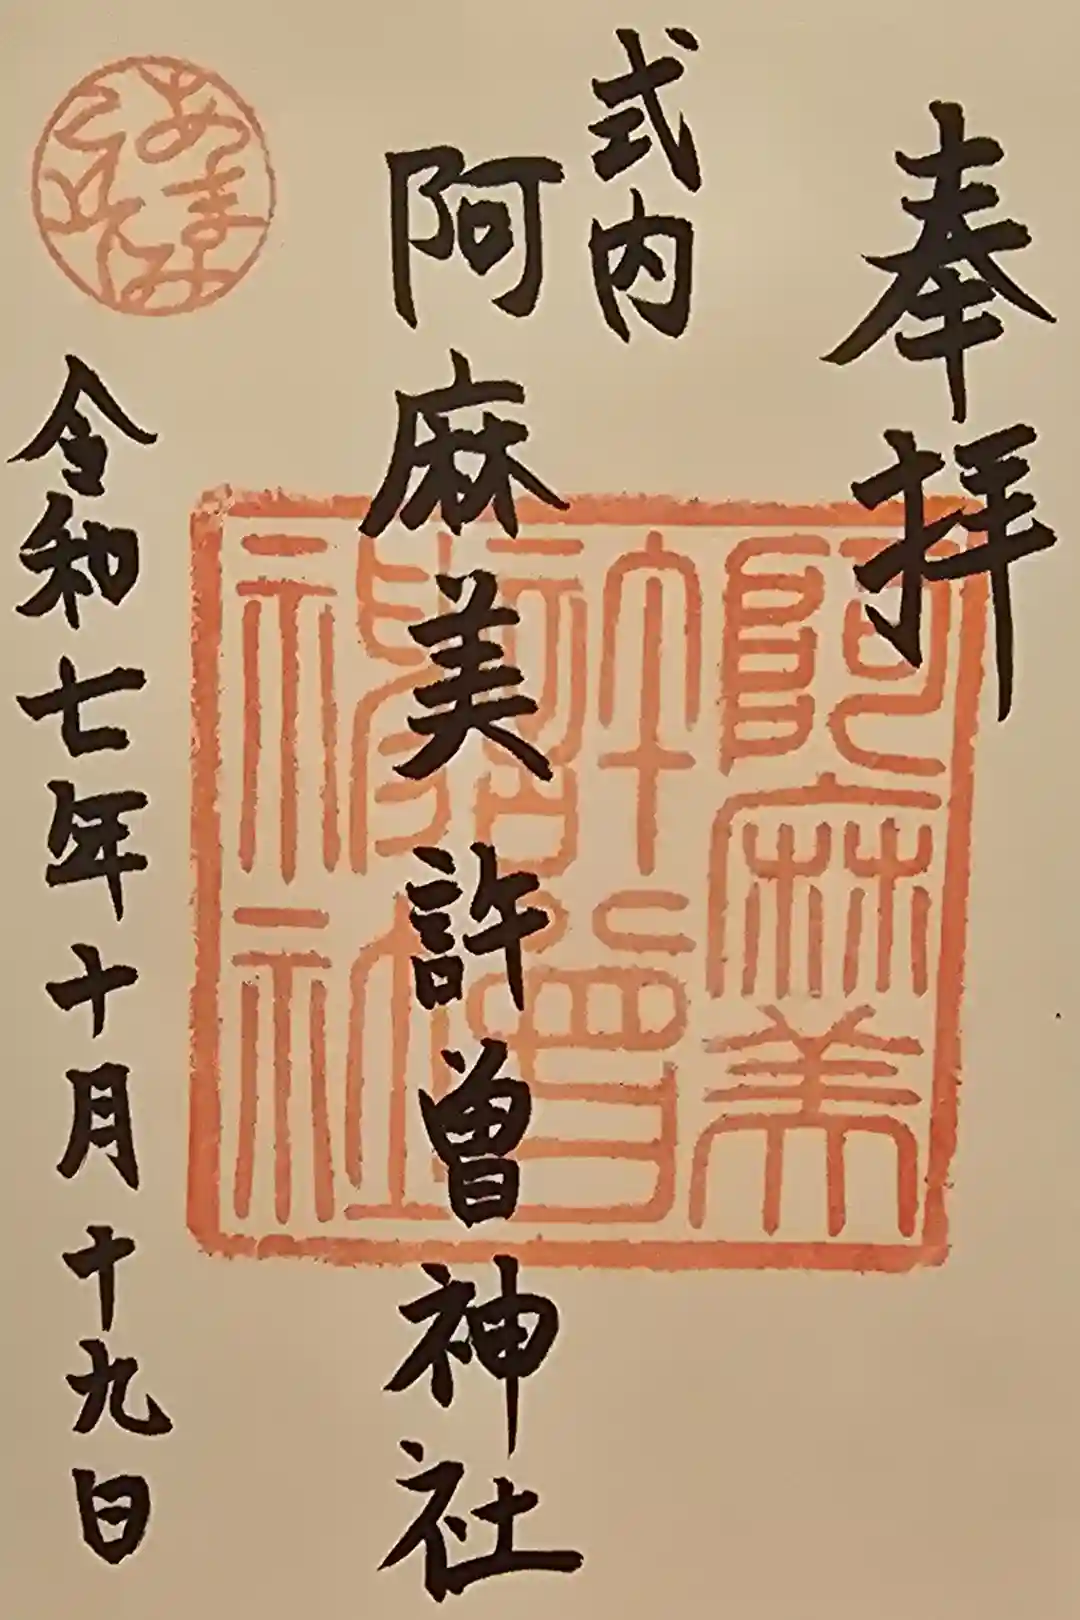 奉拝
式内
阿麻美許曽神社
令和七年十月十九日
阿麻美
許曽
神社
あまみこそ